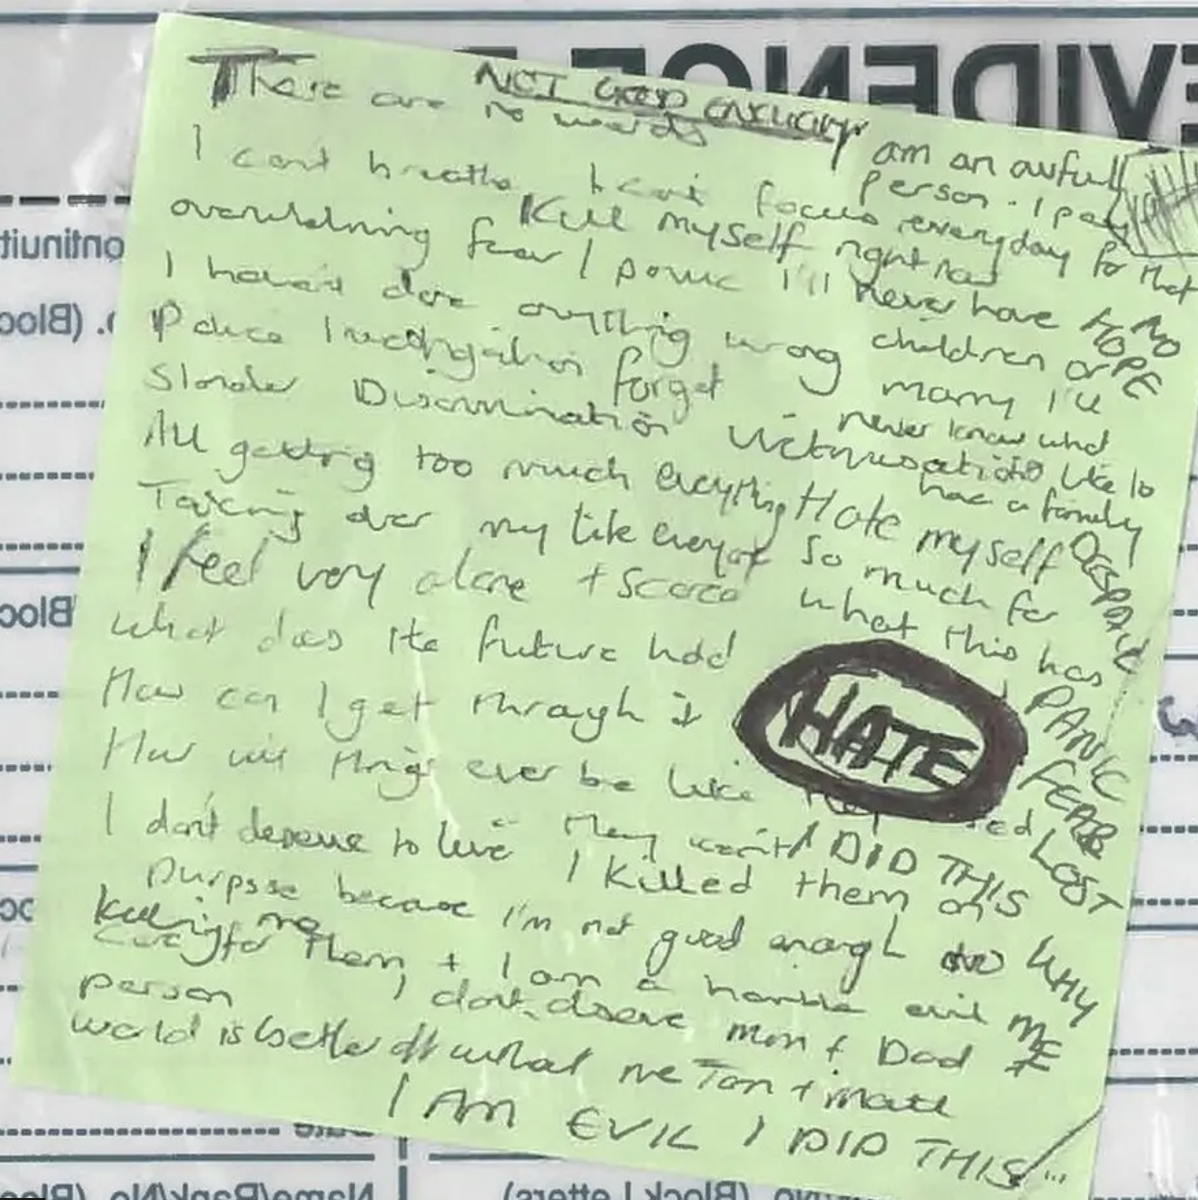 EVIDENCE
NOT GOOD ENOUGH
There are no words
I am an awful
person. I pay
I cant breathe I cant focus everyday for that
Kill myself right now
overwhelming fear / panic I'll never have
NO
HOPE
I haven't done anything wrong children or
Police Investigation forget marry I'll
never know what
Slander Discrimination Victimisation like to
have a family
All getting too much everything Hate myself
DESPAIR
Taking over my life everyone so much for
I feel very alone + scared what this has
what does the future hold
PANIC
How can I get through it
HATE
FEAR
How will things ever be like
LOST
I don't deserve to live They won't I DID THIS
I killed them on
purpose because I'm not good enough to
WHY
killing me
care for them + I am a horrible evil
ME
person I dont deserve mum + Dad
world is better off without me Tom + Matt
I AM EVIL I DID THIS
Date
Name/Rank/No. (Block Letters)